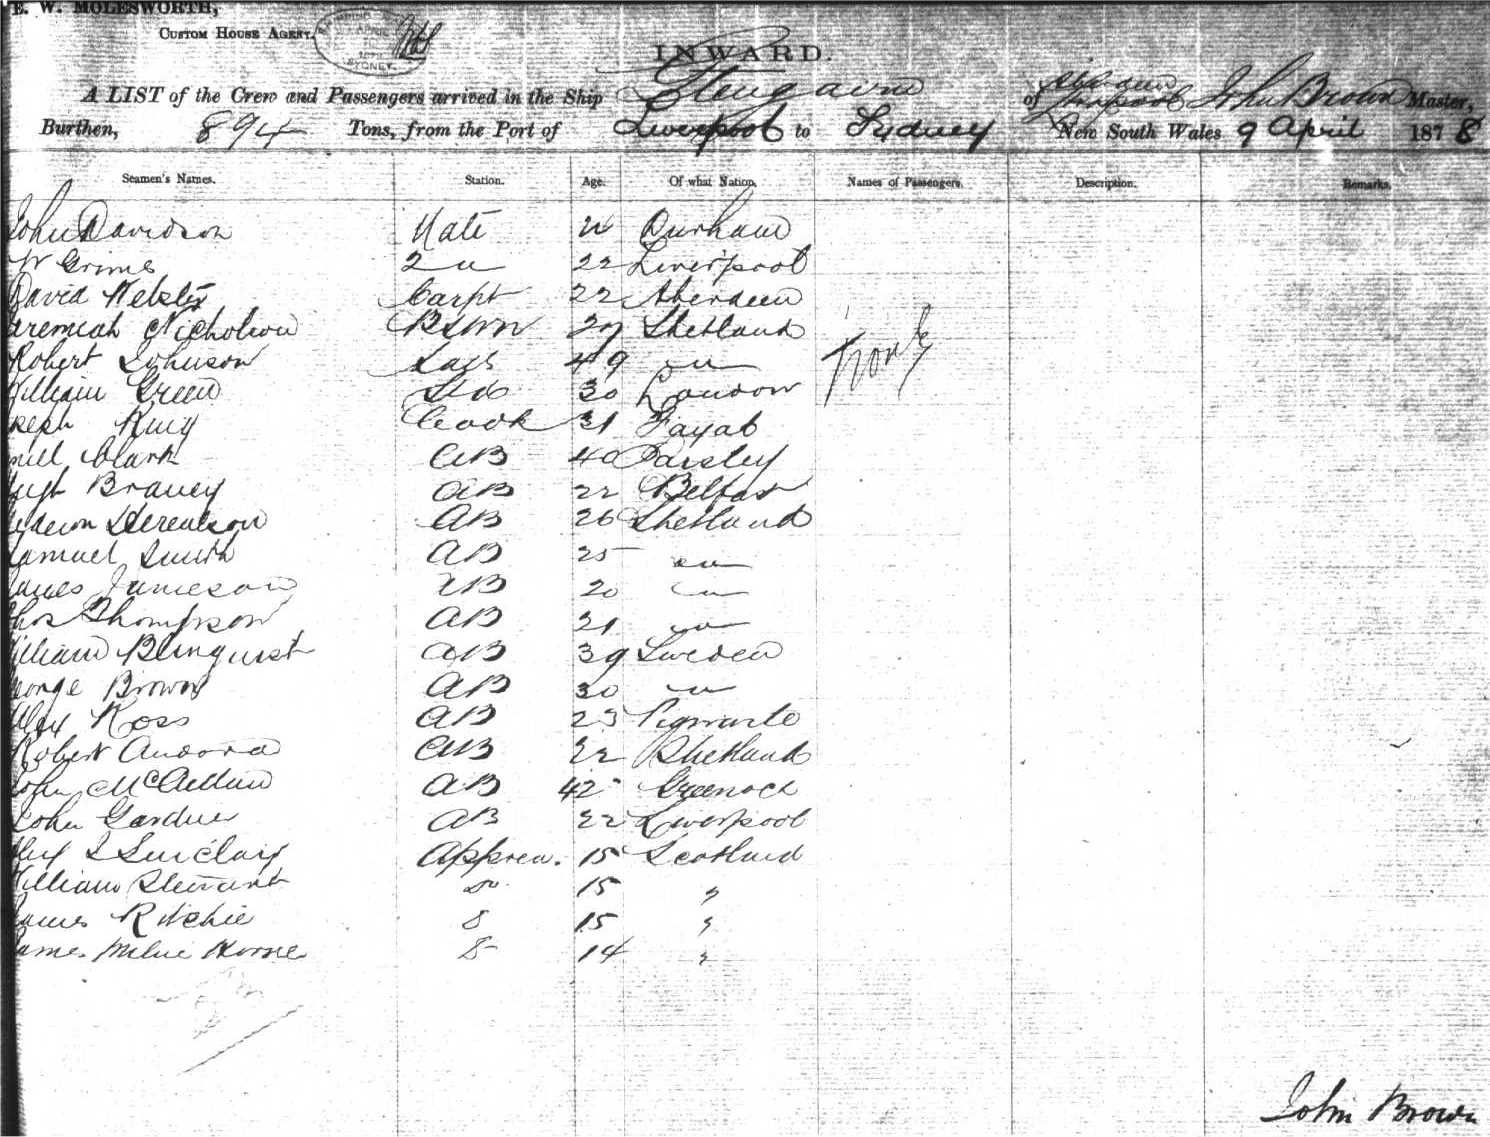 E. W. MOLESWORTH,
CUSTOM HOUSE AGENT.
APRIL
SYDNEY
INWARD.
A LIST of the Crew and Passengers arrived in the Ship Glengairn of Aberdeen Liverpool John Brown Master,
Burthen, 894 Tons, from the Port of Liverpool to Sydney New South Wales 9 April 1878
Seamen's Names. Station. Age. Of what Nation. Names of Passengers. Description. Remarks.
John Davidson Mate Durham
W Grims 2 " 22 Liverpool
David Webster Carpt 22 Aberdeen
Jeremiah Nicholson BSWN 27 Shetland
Robert Johnson 49 "
William Green Std 30 London
Joseph King Cook 31 Fayal
Clark AB 40 Paisley
Hugh Braney AB 22 Belfast
AB 26 Shetland
Samuel Smith AB 25 "
James Jamieson AB 20 "
Thos Thompson AB 21 "
William Blinquist AB 39 Sweden
George Brown AB 30 "
Alex Ross AB 23
Robert AB 22 Shetland
John AB 42 Greenock
John Gardner AB 22 Liverpool
Alex J Sinclair Appren. 15 Scotland
William Stewart do 15 "
James Ritchie 15 "
James Milne Horne 14 "
None
John Brown